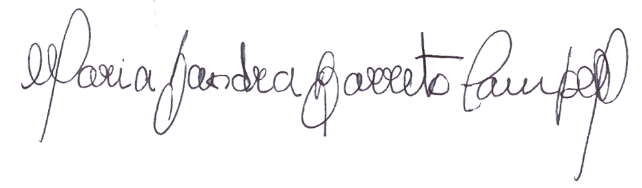 Maria Sandra Barreto Campelo